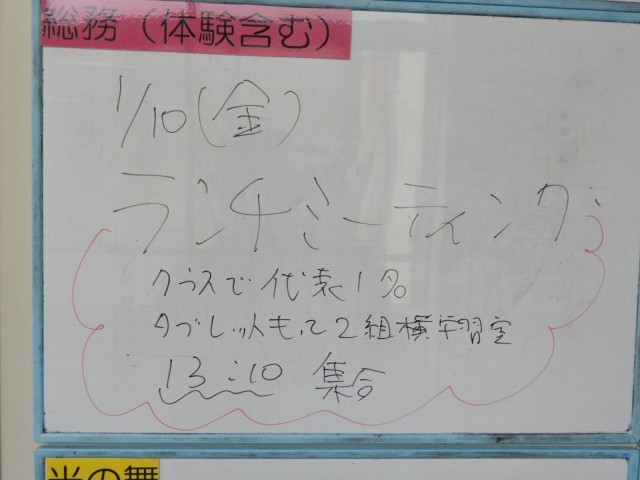 総務（体験含む）
1/10(金)
ランチミーティング
クラスで代表1名。
タブレットもって2組横学習室
13:10 集合
光の舞